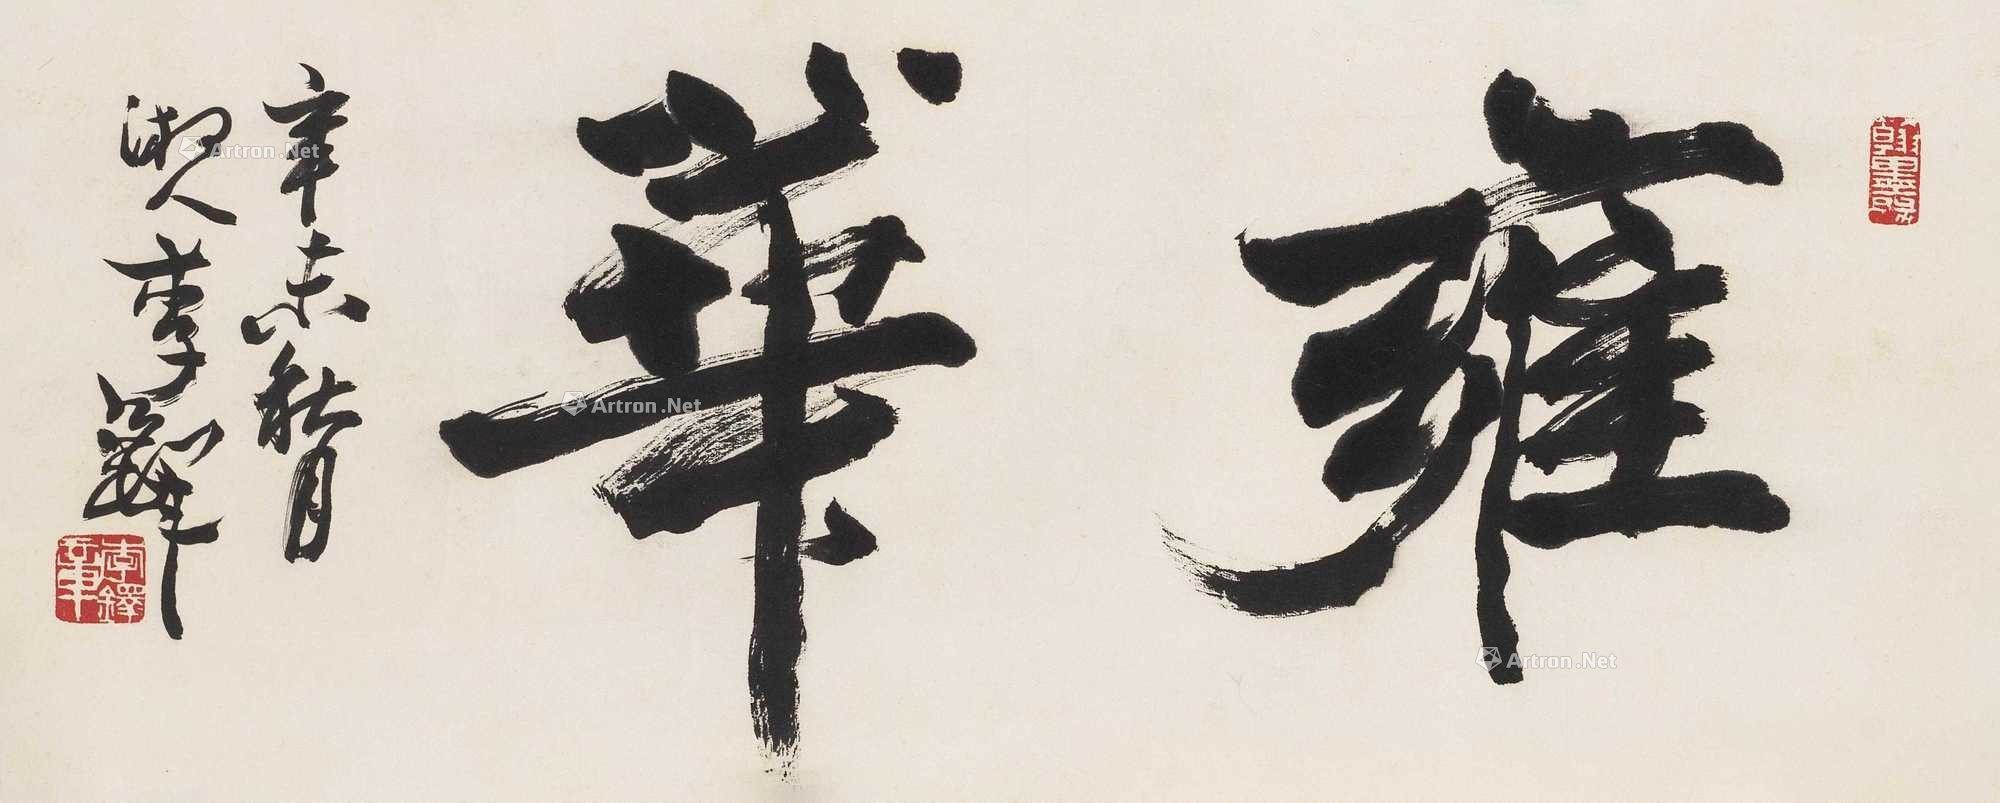 雍華
辛未秋月
湘人李鐸
翰墨緣
李鐸
Artron.Net
Artron.Net
Artron.Net